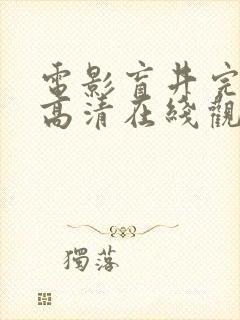 電影盲井完
高清在綫觀
獨落